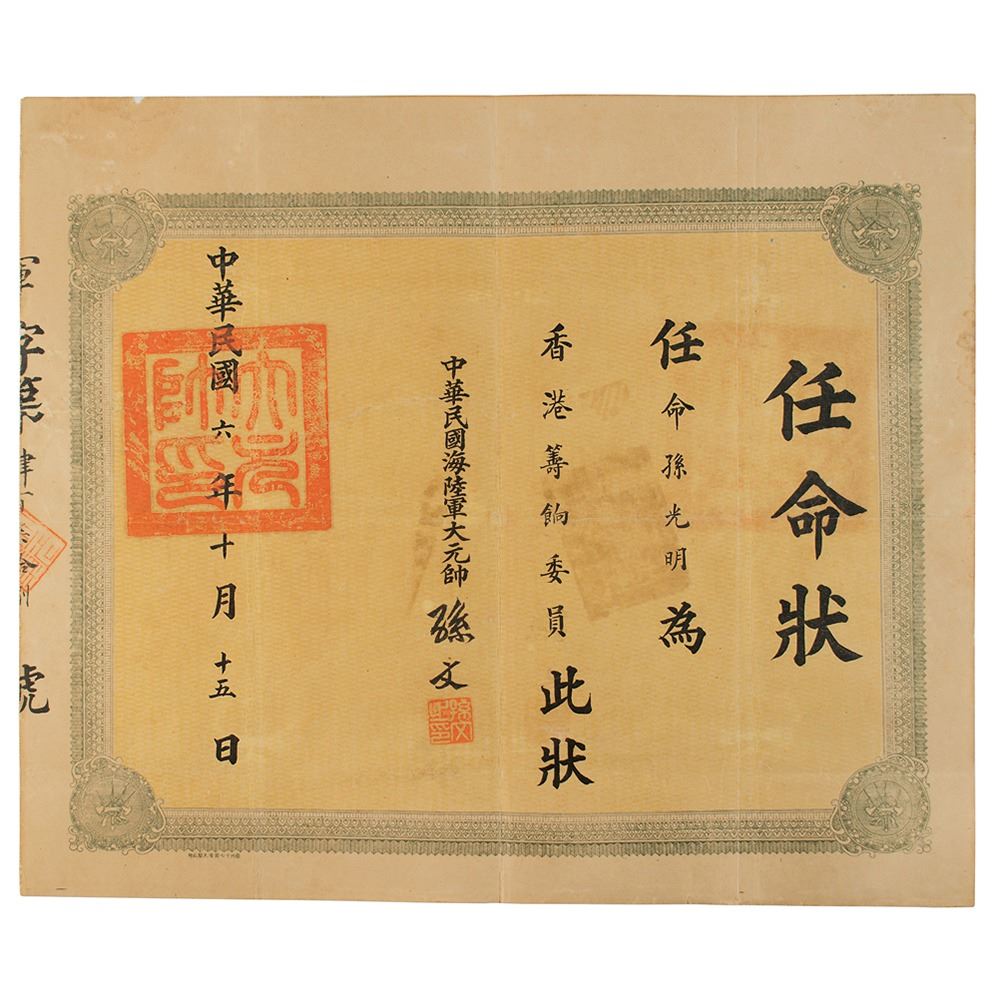 任命狀
任命孫光明為
香港籌餉委員此狀
中華民國海陸軍大元帥孫文
孫文之印
中華民國六年十月十五日
大元帥印
軍字第肆百拾號